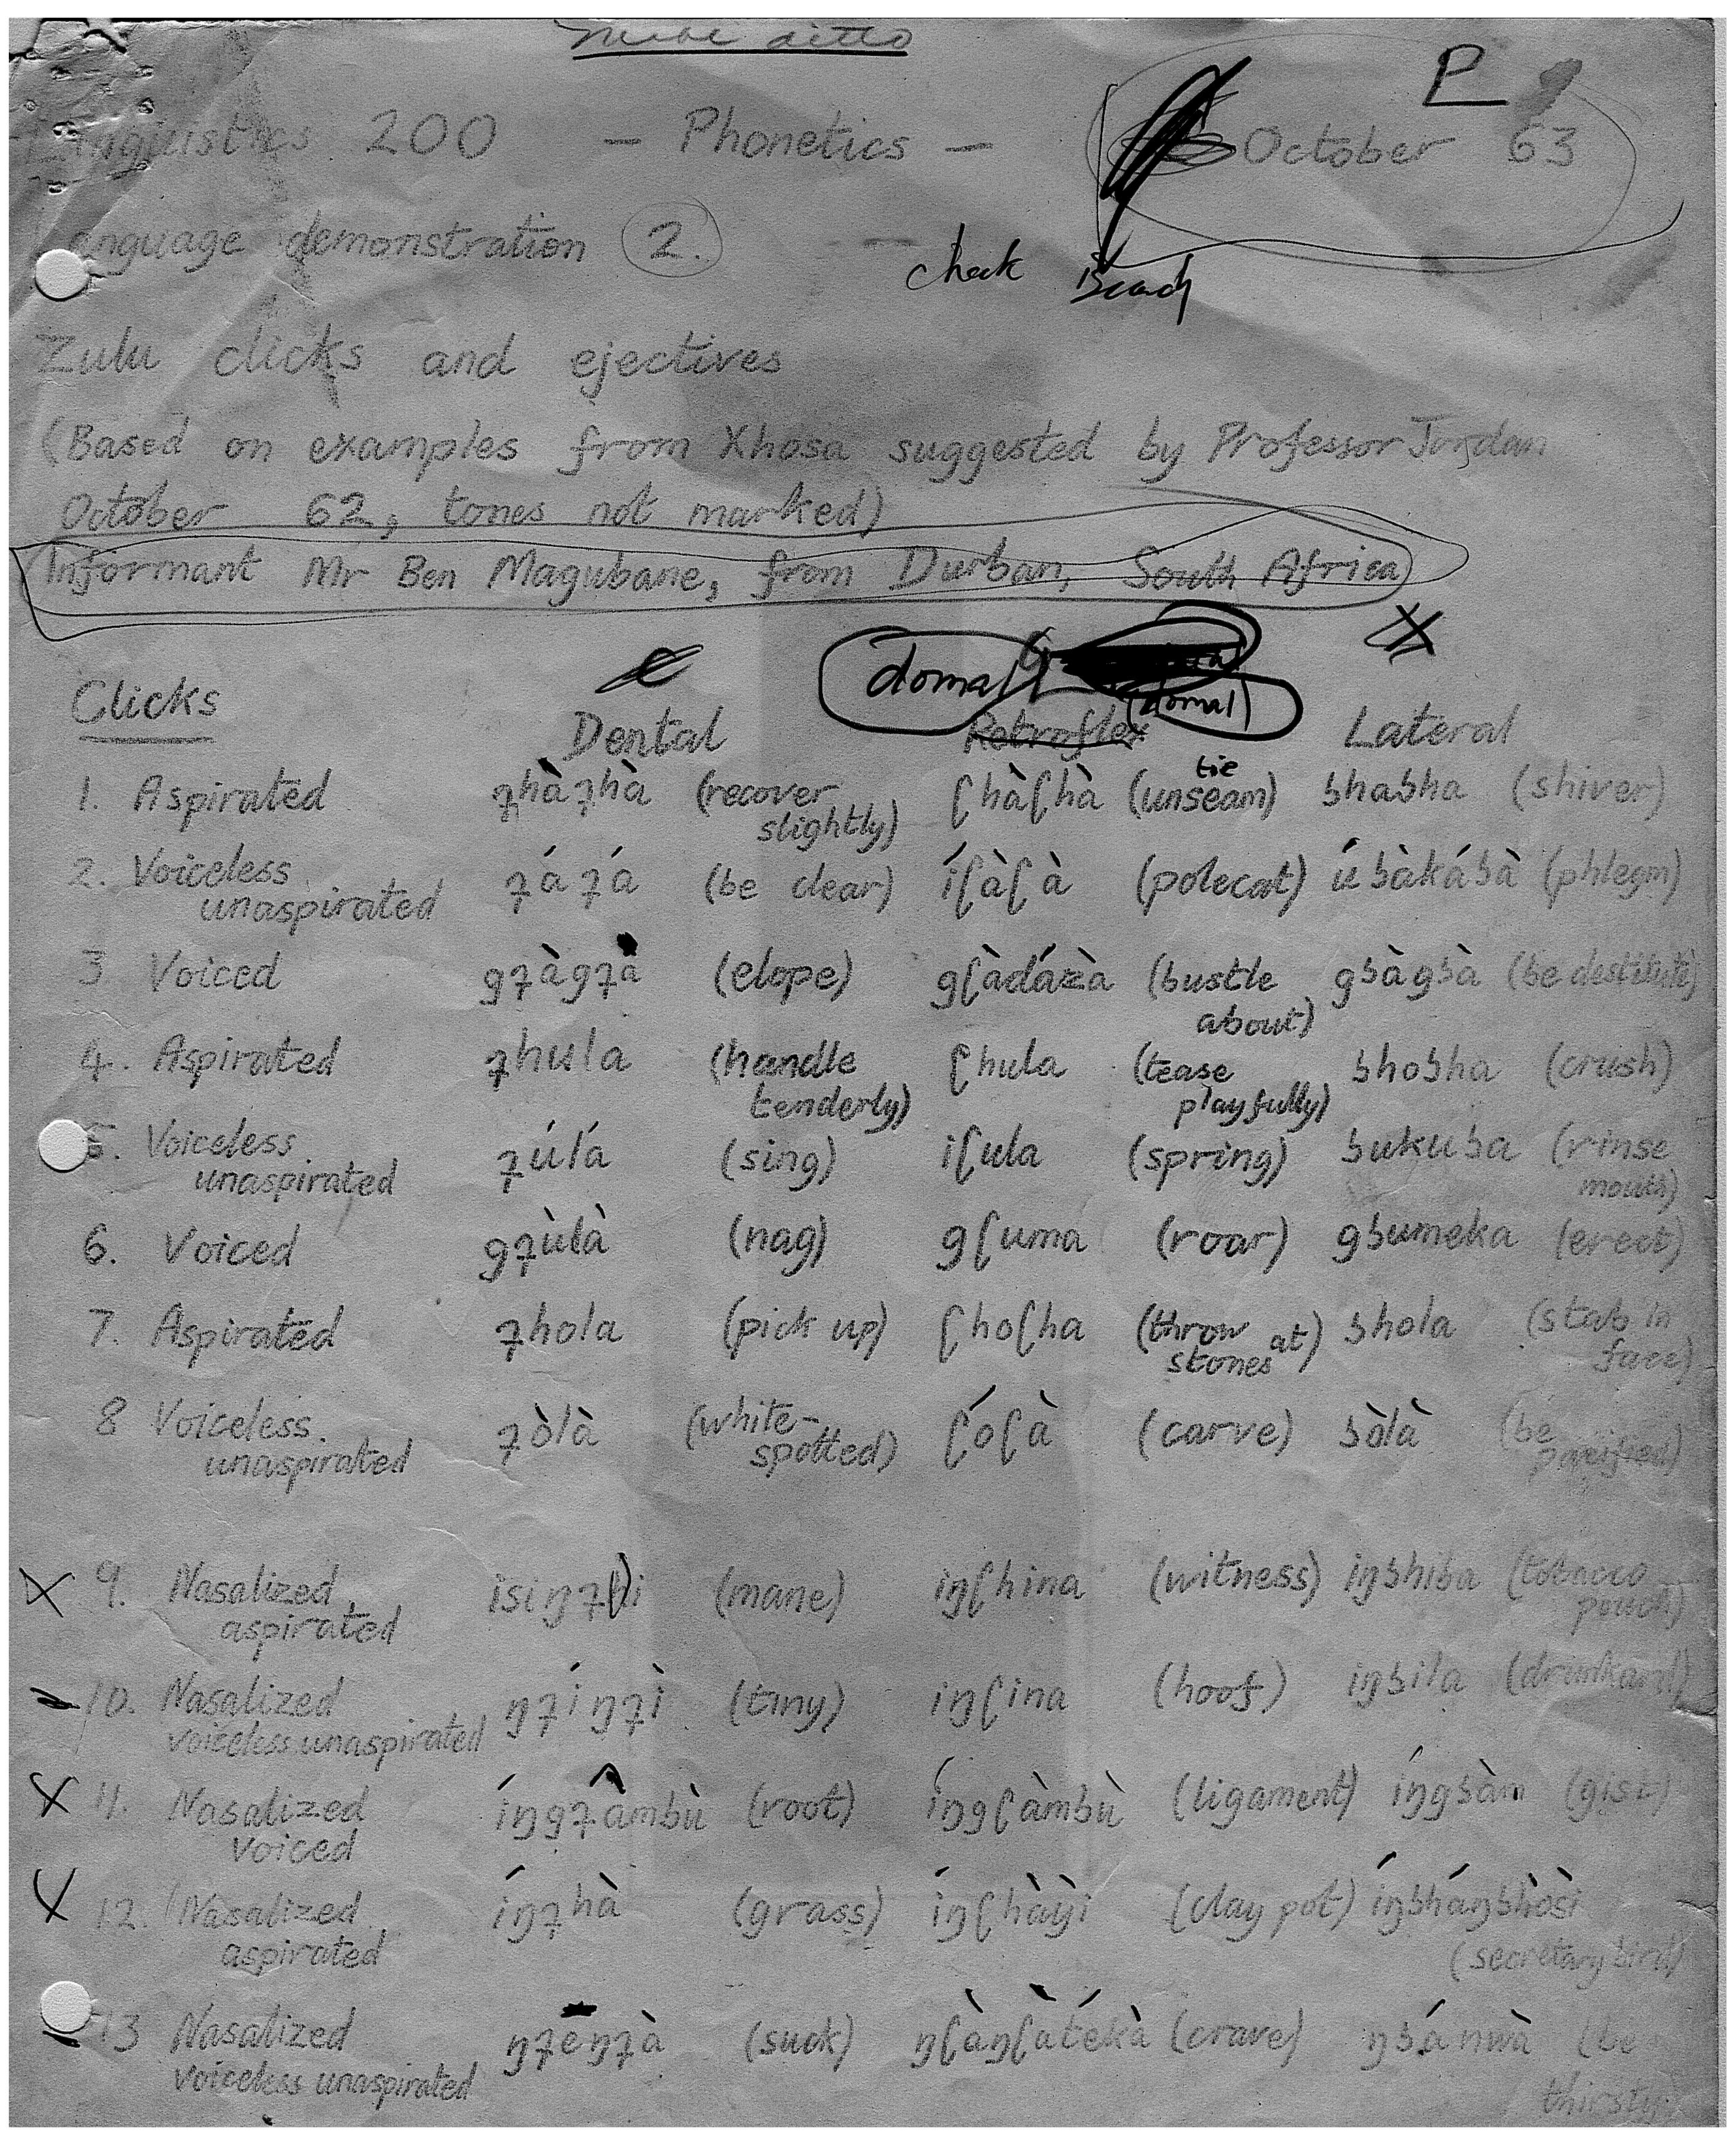 ditto
P
Linguistics 200 — Phonetics — October 63
Language demonstration 2.
check Beach
Zulu clicks and ejectives
(Based on examples from Xhosa suggested by Professor Jordan
October 62, tones not marked)
Informant Mr Ben Magubane, from Durban, South Africa
domal (domal)
Clicks Dental Retroflex Lateral
tie
1. Aspirated ʇhàʇhà (recover slightly) ʗhàʗhà (unseam) ʖhaʖha (shiver)
2. Voiceless unaspirated ʇáʇá (be clear) íʗàʗà (polecat) úʖàkáʖà (phlegm)
3. Voiced gʇàgʇà (elope) gʗàdázà (bustle about) gʖàgʖà (be destitute)
4. Aspirated ʇhula (handle tenderly) ʗhula (tease playfully) ʖhoʖha (crush)
5. Voiceless unaspirated ʇúlá (sing) iʗula (spring) ʖukuʖa (rinse mouth)
6. Voiced gʇùlà (nag) gʗuma (roar) gʖumeka (erect)
7. Aspirated ʇhola (pick up) ʗhoʗha (throw stones at) ʖhola (stab in face)
8 Voiceless unaspirated ʇòlà (white-spotted) ʗóʗà (carve) ʖòlà (be purified)
9. Nasalized aspirated isiŋʇhi (mane) iŋʗhina (witness) iŋʖhiba (tobacco pouch)
10. Nasalized voiceless unaspirated ŋʇíŋʇì (tiny) iŋʗina (hoof) iŋʖila (drunkard)
11. Nasalized voiced íŋgʇâmbù (root) íŋgʗàmbù (ligament) íŋgʖàm (gist)
12. Nasalized aspirated íŋʇhà (grass) íŋʗhàyì (clay pot) íŋʖháŋʖhòsì (secretary bird)
13 Nasalized voiceless unaspirated ŋʇēŋʇà (suck) ŋʗàŋʗàtékà (crave) ŋʖánwà (be thirsty)